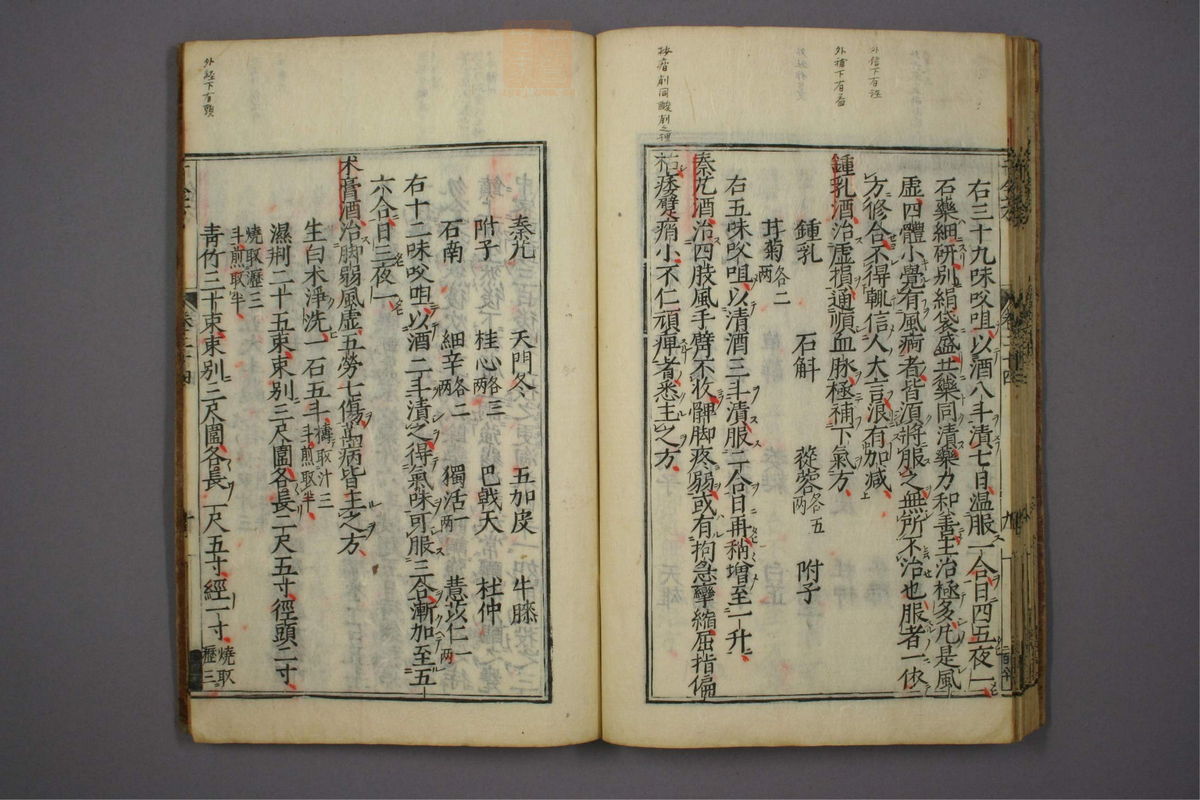 外信下有注
外補下有益
右三十九味㕮咀以酒八斗漬七日温服一合日四五夜一
石藥細研別絹袋盛共藥同漬藥力和善主治極多凡是風
虚四體小覺有風痾者皆須將服之無所不治也服者一依
方修合不得輒信人大言浪有加減
鍾乳酒治虚損通順血脉極補下氣方
鍾乳 石斛 蓯蓉各五兩 附子
甘菊各二兩
右五味㕮咀以清酒三斗漬服二合日再稍增至一升
秦艽酒治四肢風手臂不收髀脚疼弱或有拘急攣縮屈指偏
枯痿躄痟小不仁頑痺者悉主之方
外經下有頭
秦艽 天門冬 五加皮 牛膝
附子 桂心各三兩 巴戟天 杜仲
石南 細辛各二兩 獨活一兩 薏苡仁一兩
右十二味㕮咀以酒二斗漬之得氣味可服三合漸加至五
六合日三夜一
术膏酒治脚弱風虚五勞七傷萬病皆主之方
生白术淨洗一石五斗擣取汁三斗煎取半
濕荆二十五束束別三尺圍各長二尺五寸徑頭二寸
燒取瀝三斗煎取半
青竹三十束束別三尺圍各長一尺五寸經一寸燒取瀝三